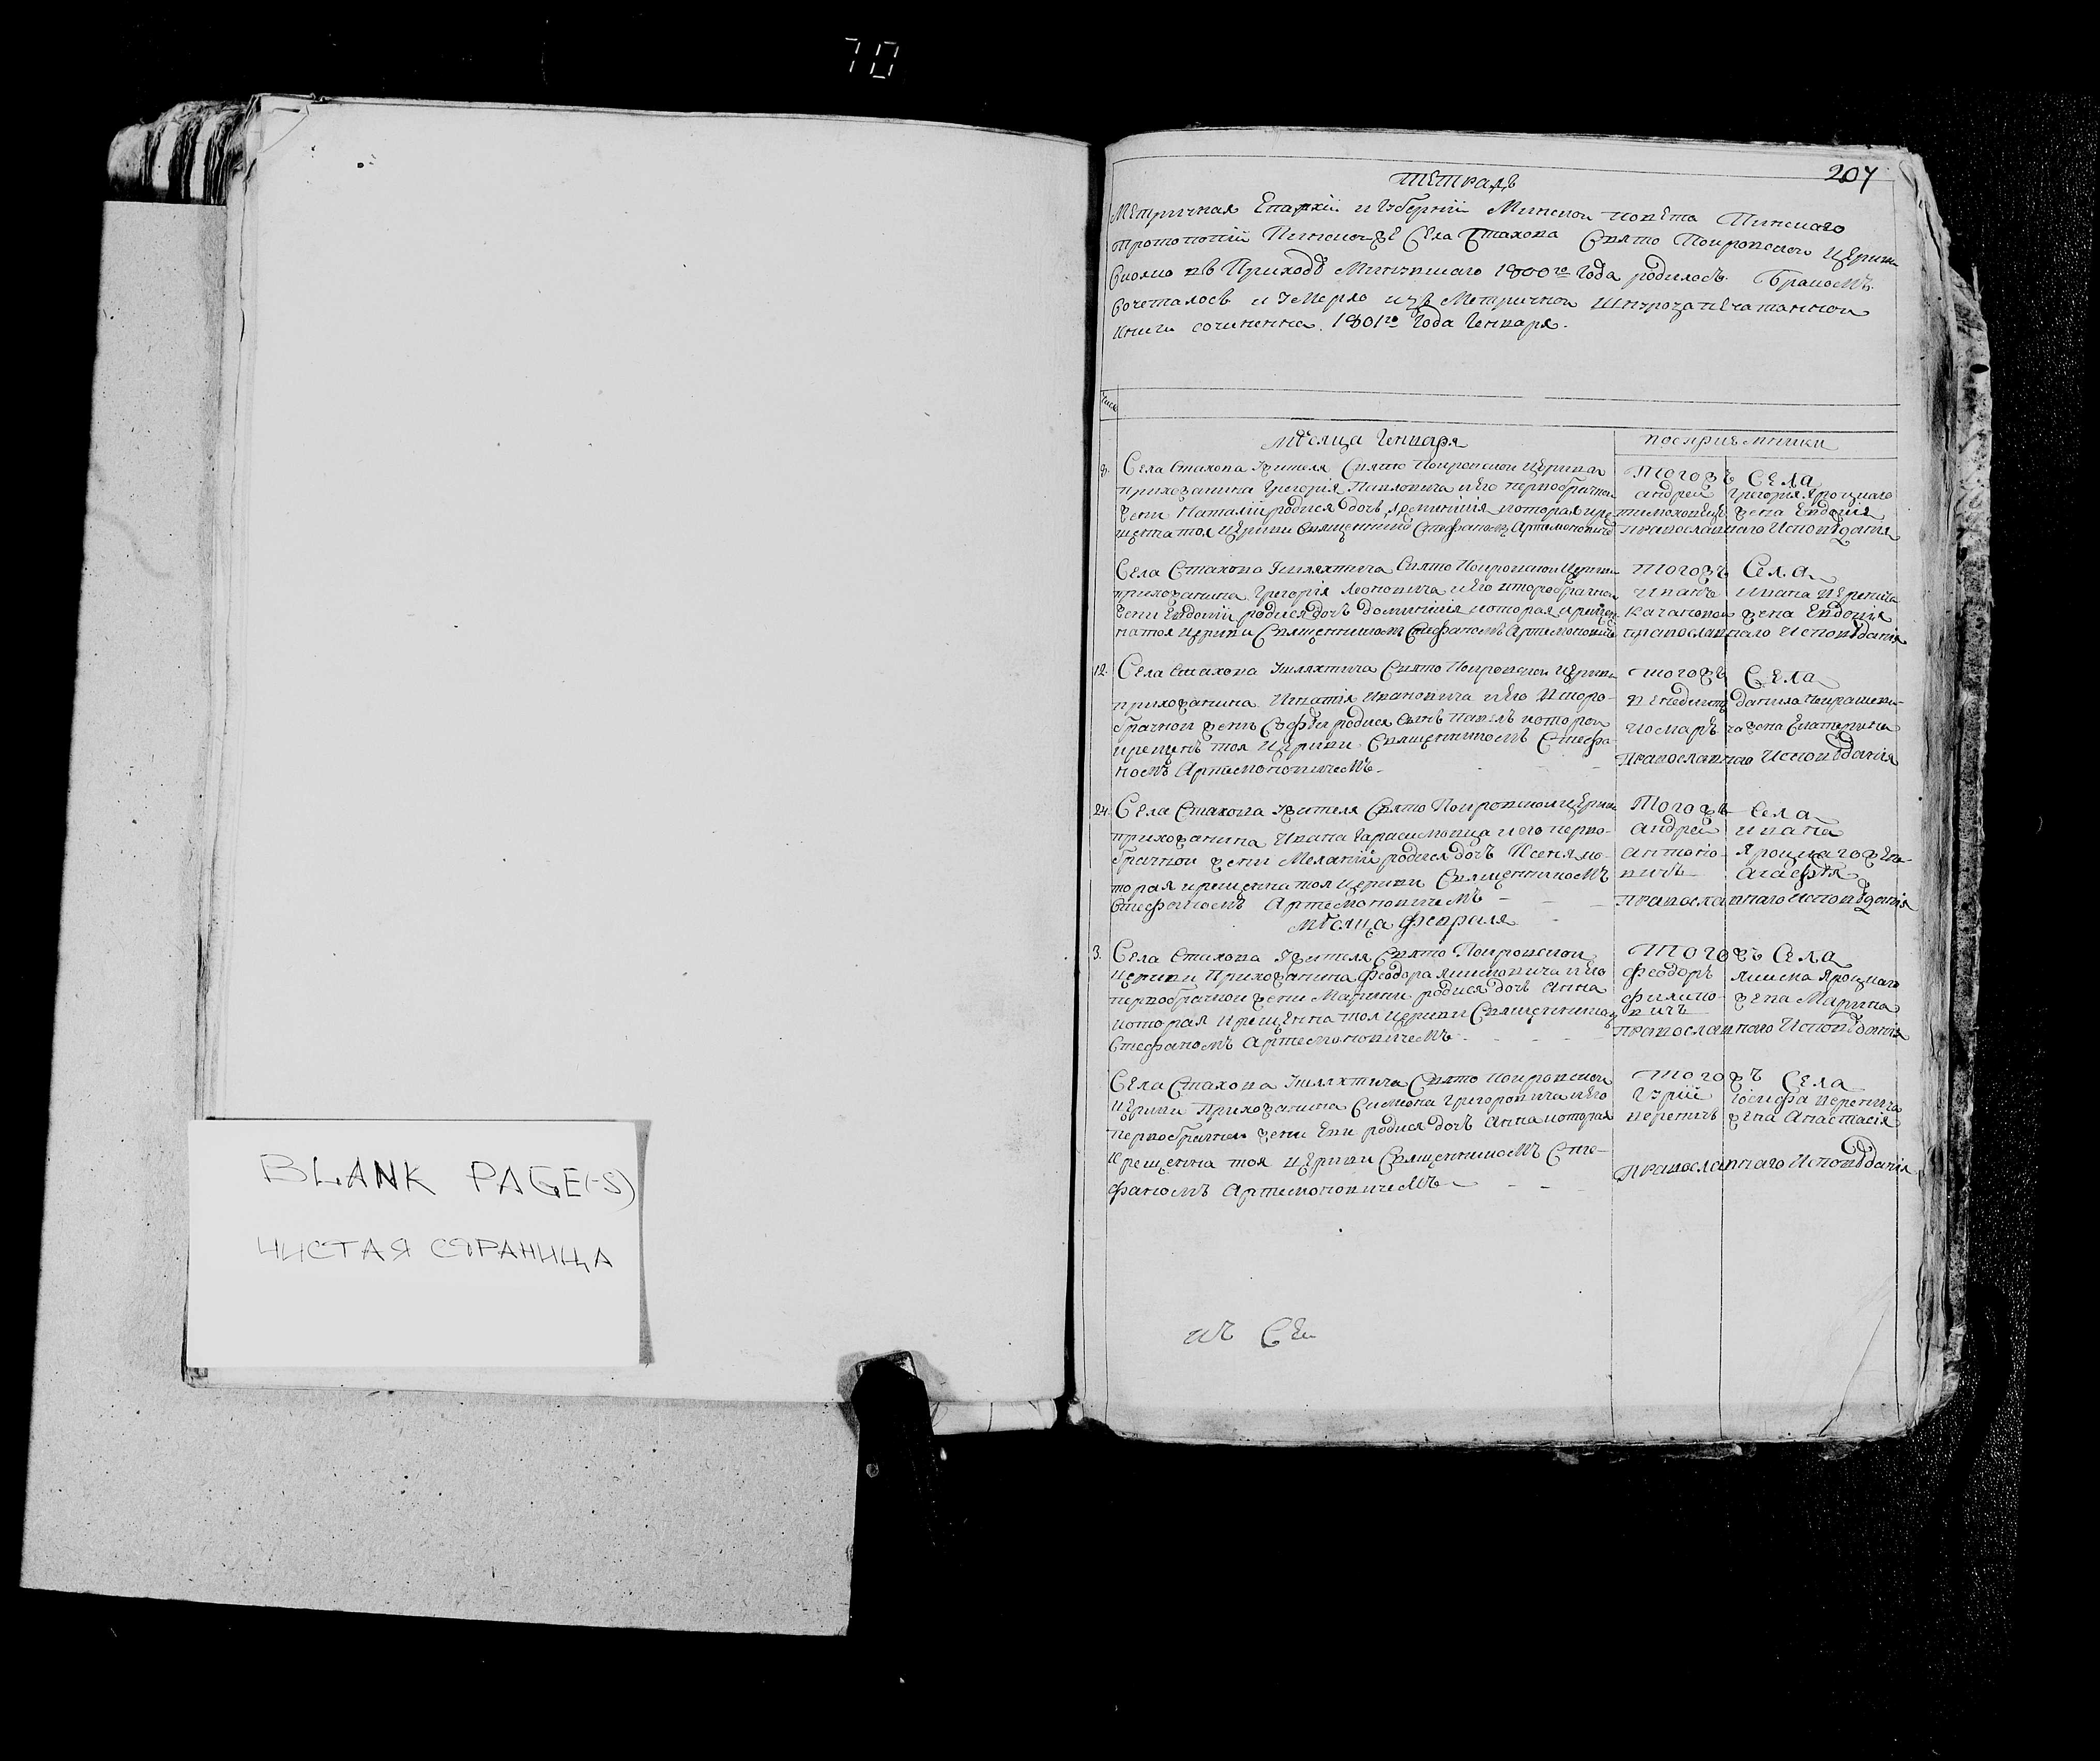 70
BLANK PAGE(-S)
ЧИСТАЯ СТРАНИЦА
207
Тетрадь
Метричная Епархіи и Губерніи Минской повета Пинскаго
протопопіи Пинской же Села Стахова Свято Покровской церкви
Сколко въ Приходѣ Минувшаго 1800го Года родилось Бракомъ
Сочеталось и Умерло изъ Метричной Шнурозапечатанной
книги сочиненна 1801го Года Генваря.
Мѣсяца Генваря
воспріемники
8. Села Стахова Жителя Свято Покровской Церкви
прихожанина Григорія Павловича и Его первобрачной
жены Наталіи родися дочь которая кре-
щена тоя Церкви Священникомъ Стефаномъ Артемоновичемъ
Тогожъ Села
андрей Григория Яроцкаго
жена Евдокія
православнаго Исповѣданія
Села Стахова Шляхтича Свято Покровской Церкви
прихожанина Григорія Леоновича и Его второбрачной
жены Евдокіи родися дочь Доминикія которая крещен-
на тоя Церкви Священникомъ Стефаномъ Артемоновичемъ
Тогожъ Села
Иванъ Ивана Веренича
Качановский жена Евдокія
православнаго Исповѣданія
12. Села Стахова Шляхтича Свято Покровской Церкви
прихожанина Игнатія Ивановича и Его Второ-
брачной жены Софіи родися Сынъ Павелъ которой
крещенъ тоя Церкви Священникомъ Стефа-
номъ Артемоновичемъ
Тогожъ Села
Венедиктъ Данила
Комаръ жена Екатерина
православнаго Исповѣданія
24. Села Стахова Жителя Свято Покровской Церкви
прихожанина Ивана Гарасимовича и его перво-
брачной жены Меланіи родися дочь Ксенія ко-
торая крещенна тоя церкви Священникомъ
Стефаномъ Артемоновичемъ
Тогожъ Села
андрей Ивана
антоно- Яроцкаго жена
вичъ Агафія
православнаго Исповѣданія
Мѣсяца Февраля
3. Села Стахова Жителя Свято Покровской
церкви Прихожанина Феодора Якимовича и Его
первобрачной жены Марины родися дочь Анна
которая крещенна тоя церкви Священникомъ
Стефаномъ Артемоновичемъ
Тогожъ Села
Феодоръ Якима Яроцкаго
Филипо- жена Марина
вичъ
православнаго Исповѣданія
Села Стахова Шляхтича Свято Покровской
Церкви Прихожанина Симеона Григоровича и Его
первобрачной жены Евы родися дочь Анна которая
Крещенна тоя церкви Священникомъ Сте-
фаномъ Артемоновичемъ
Тогожъ Села
Гурій Іосифа Веренича
Вереничъ жена Анастасія
православнаго Исповѣданія